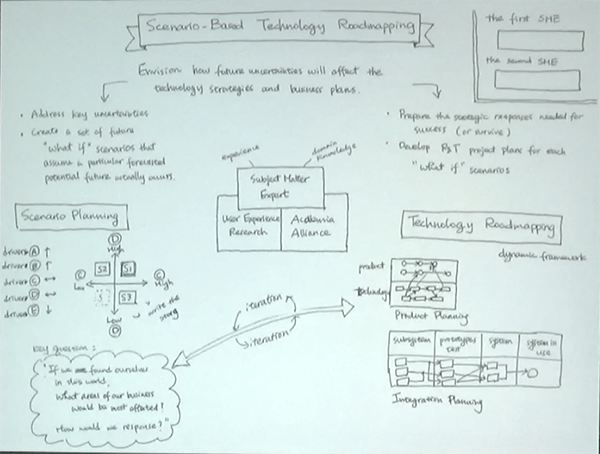 Scenario-Based Technology Roadmapping
the first SME
the second SME
Envision how future uncertainties will affect the
technology strategies and business plans.
• Address key uncertainties
• Create a set of future
"what if" scenarios that
assume a particular forecasted
potential future actually occurs.
• Prepare the strategic responses needed for
success (or survive)
• Develop R&T project plans for each
"what if" scenarios
experience
domain
knowledge
Subject Matter
Expert
User Experience
Research
Academia
Alliance
Scenario Planning
driver A ↑
driver B ↑
driver C ↔
driver D ↔
driver E ↓
D
High
S2
S1
C
Low
C
High
S3
Low
D
write the
story
iteration
iteration
Technology Roadmapping
dynamic framework
product
technology
Product Planning
subsystem
prototypes
test
system
system in
use
Integration Planning
key question:
"If we found ourselves
in this world,
What areas of our business
would be most affected?
How would we response?"